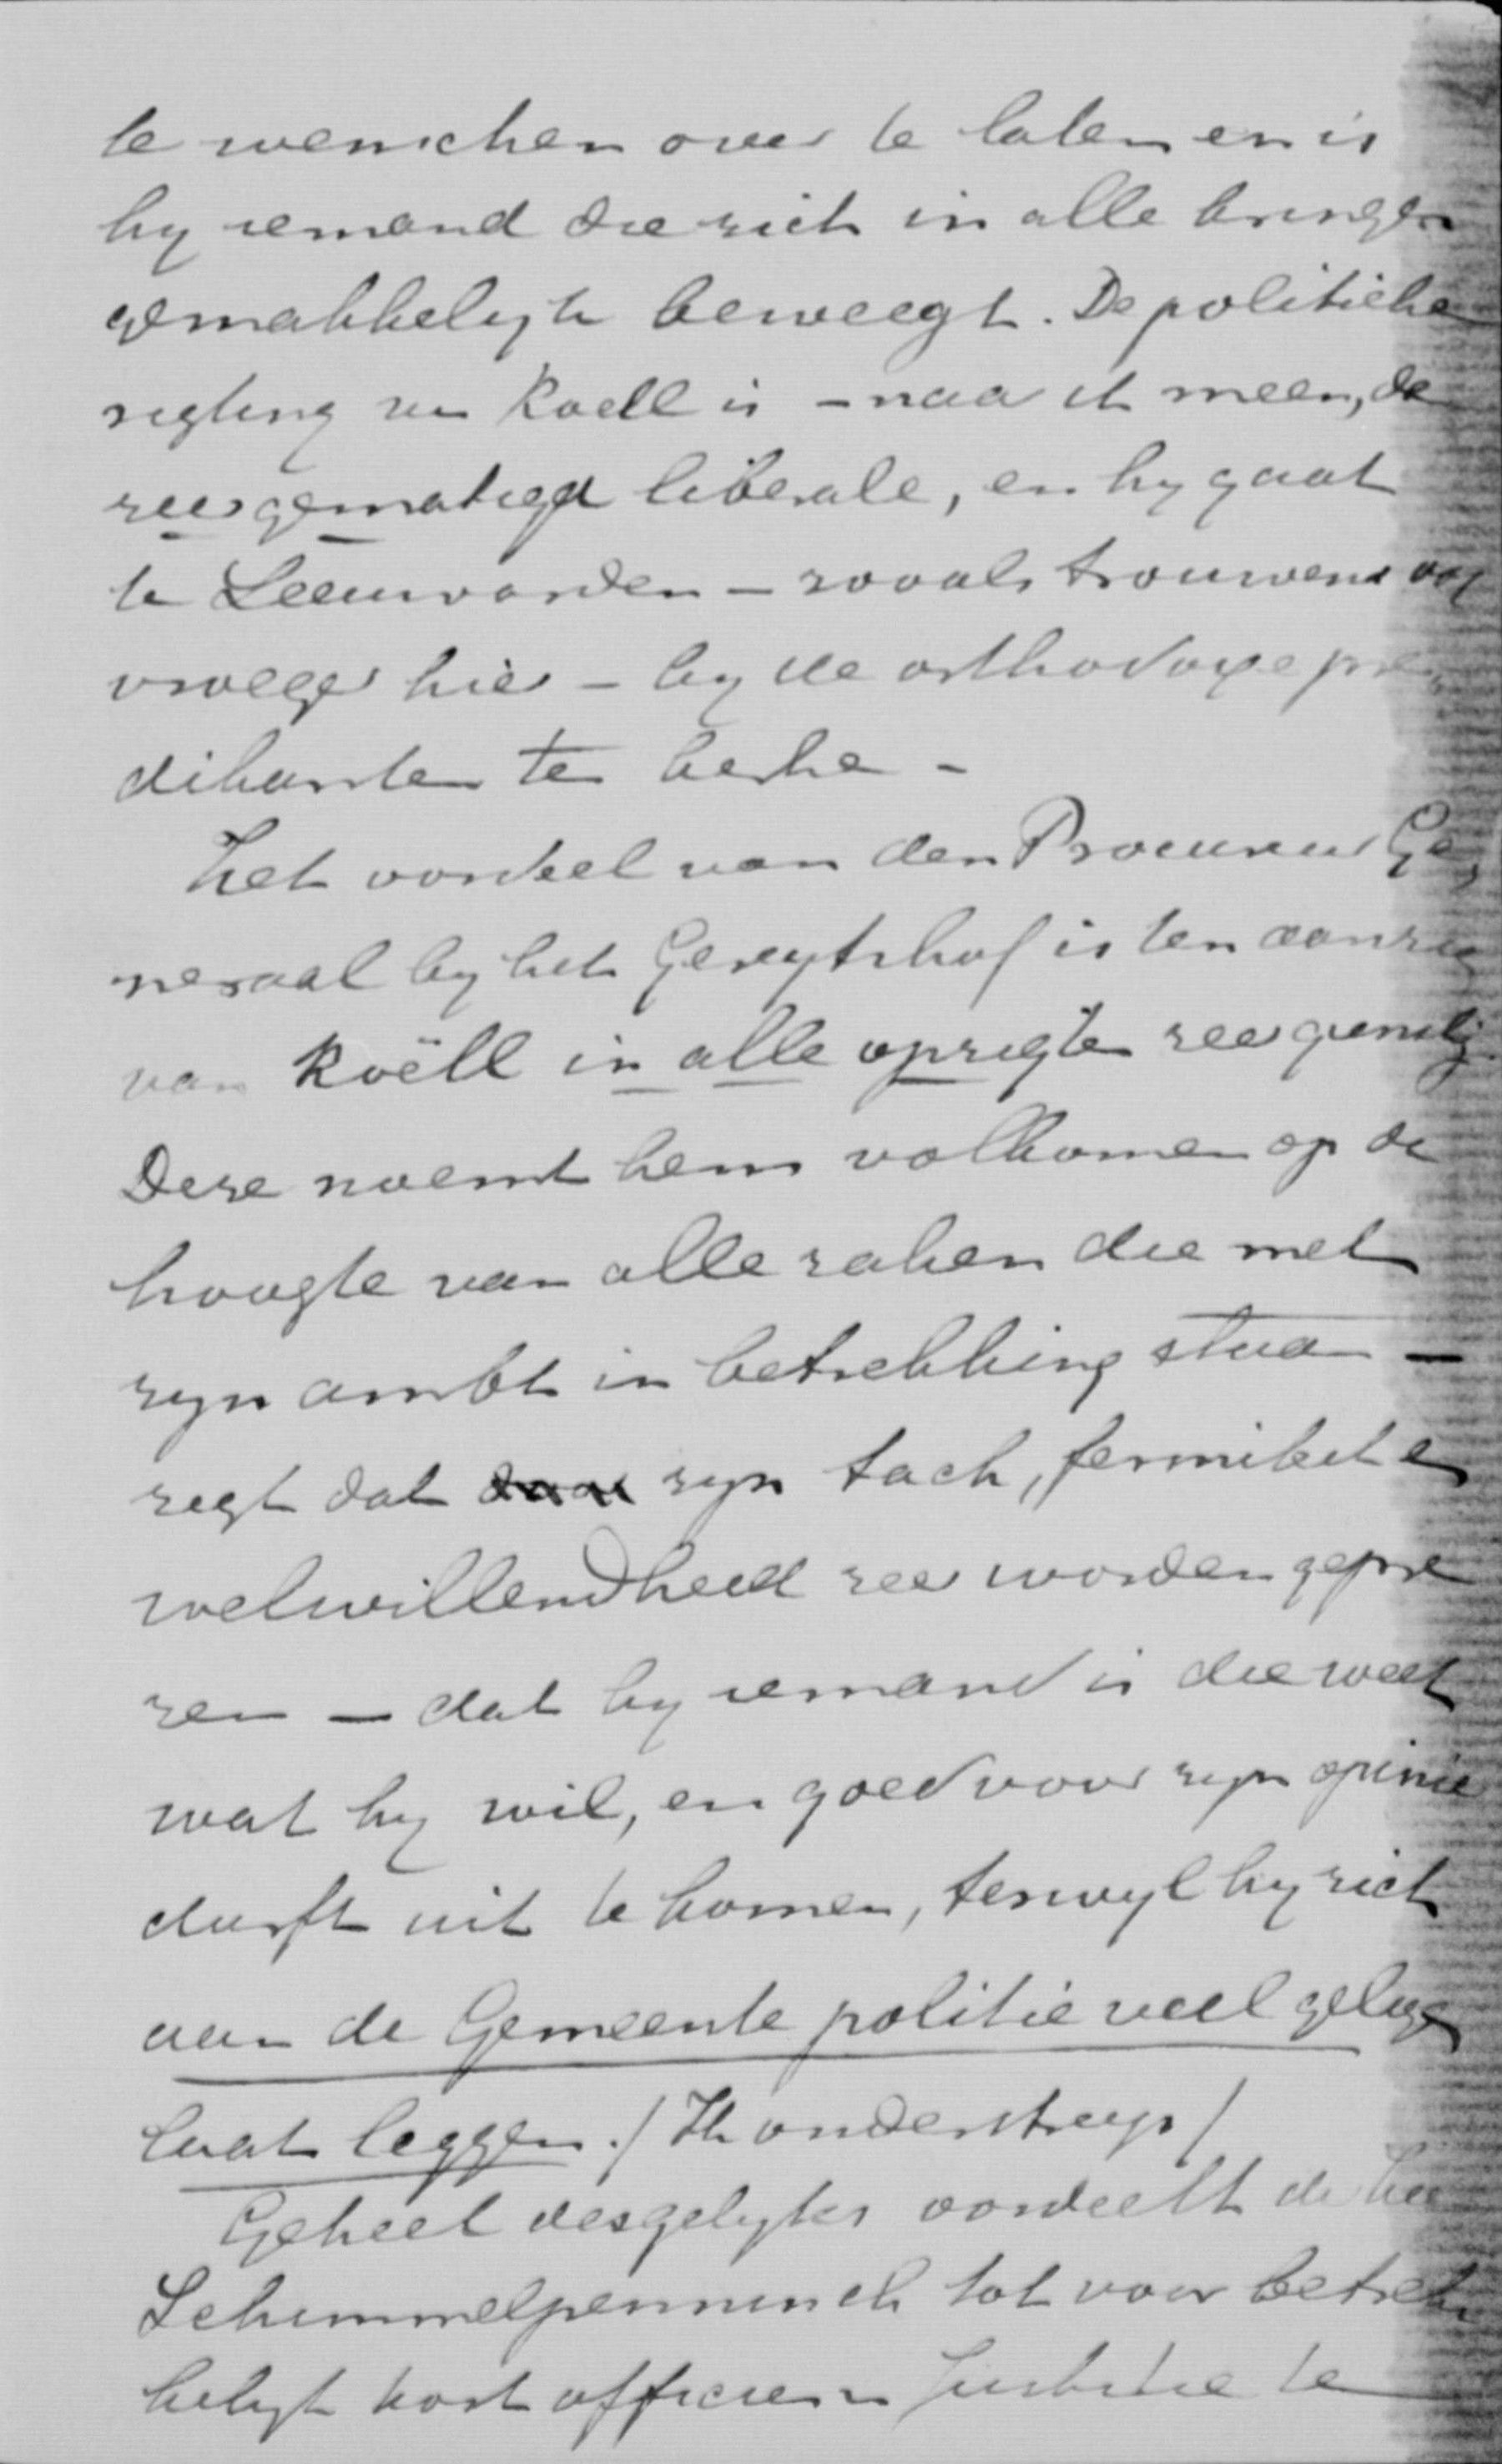 te wenschen over te laten en is
hy iemand die zich in alle kringen
gemakkelyk beweegt. De politieke
rigting van Roëll is – naar ik meen, de
zeer gematigd liberale, en hy gaat
te Leeuwarden – zooals trouwens ook
vroeger hier – by de orthodoxe pre,
dikanten ter kerke –
Het oordeel van den Procureur Ge,
neraal by het Geregtshof is ten aanzien
van Roëll in alle opzigten zeer gunstig.
Deze noemt hem volkomen op de
hoogte van alle zaken die met
zyn ambt in betrekking staan –
zegt dat daar zyn tact, fermiteit en
welwillendheid zeer worden gepre
zen – dat hy iemand is die weet
wat hy wil, en goed voor zyn opinie
durft uit te komen, terwyl hy zich
aan de Gemeente politie veel gelegen
laat leggen. / Ik onderstreep /
Geheel desgelyks oordeelt de heer
Schimmelpenninck tot voor betrek
kelyk kort officier v. Justitie te